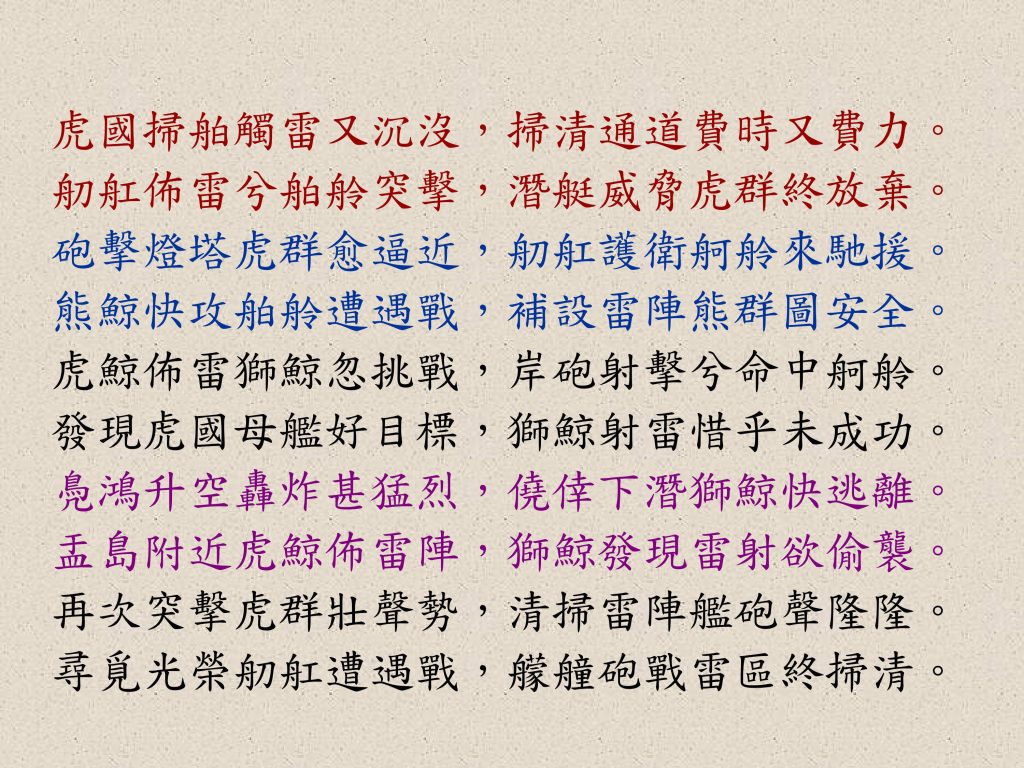 虎國掃舶觸雷又沉沒，掃清通道費時又費力。
舠舡佈雷兮舶舲突擊，潛艇威脅虎群終放棄。
砲擊燈塔虎群愈逼近，舠舡護衛舸舲來馳援。
熊鯨快攻舶舲遭遇戰，補設雷陣熊群圖安全。
虎鯨佈雷獅鯨忽挑戰，岸砲射擊兮命中舸舲。
發現虎國母艦好目標，獅鯨射雷惜乎未成功。
鳧鴻升空轟炸甚猛烈，僥倖下潛獅鯨快逃離。
盂島附近虎鯨佈雷陣，獅鯨發現雷射欲偷襲。
再次突擊虎群壯聲勢，清掃雷陣艦砲聲隆隆。
尋覓光榮舠舡遭遇戰，艨艟砲戰雷區終掃清。